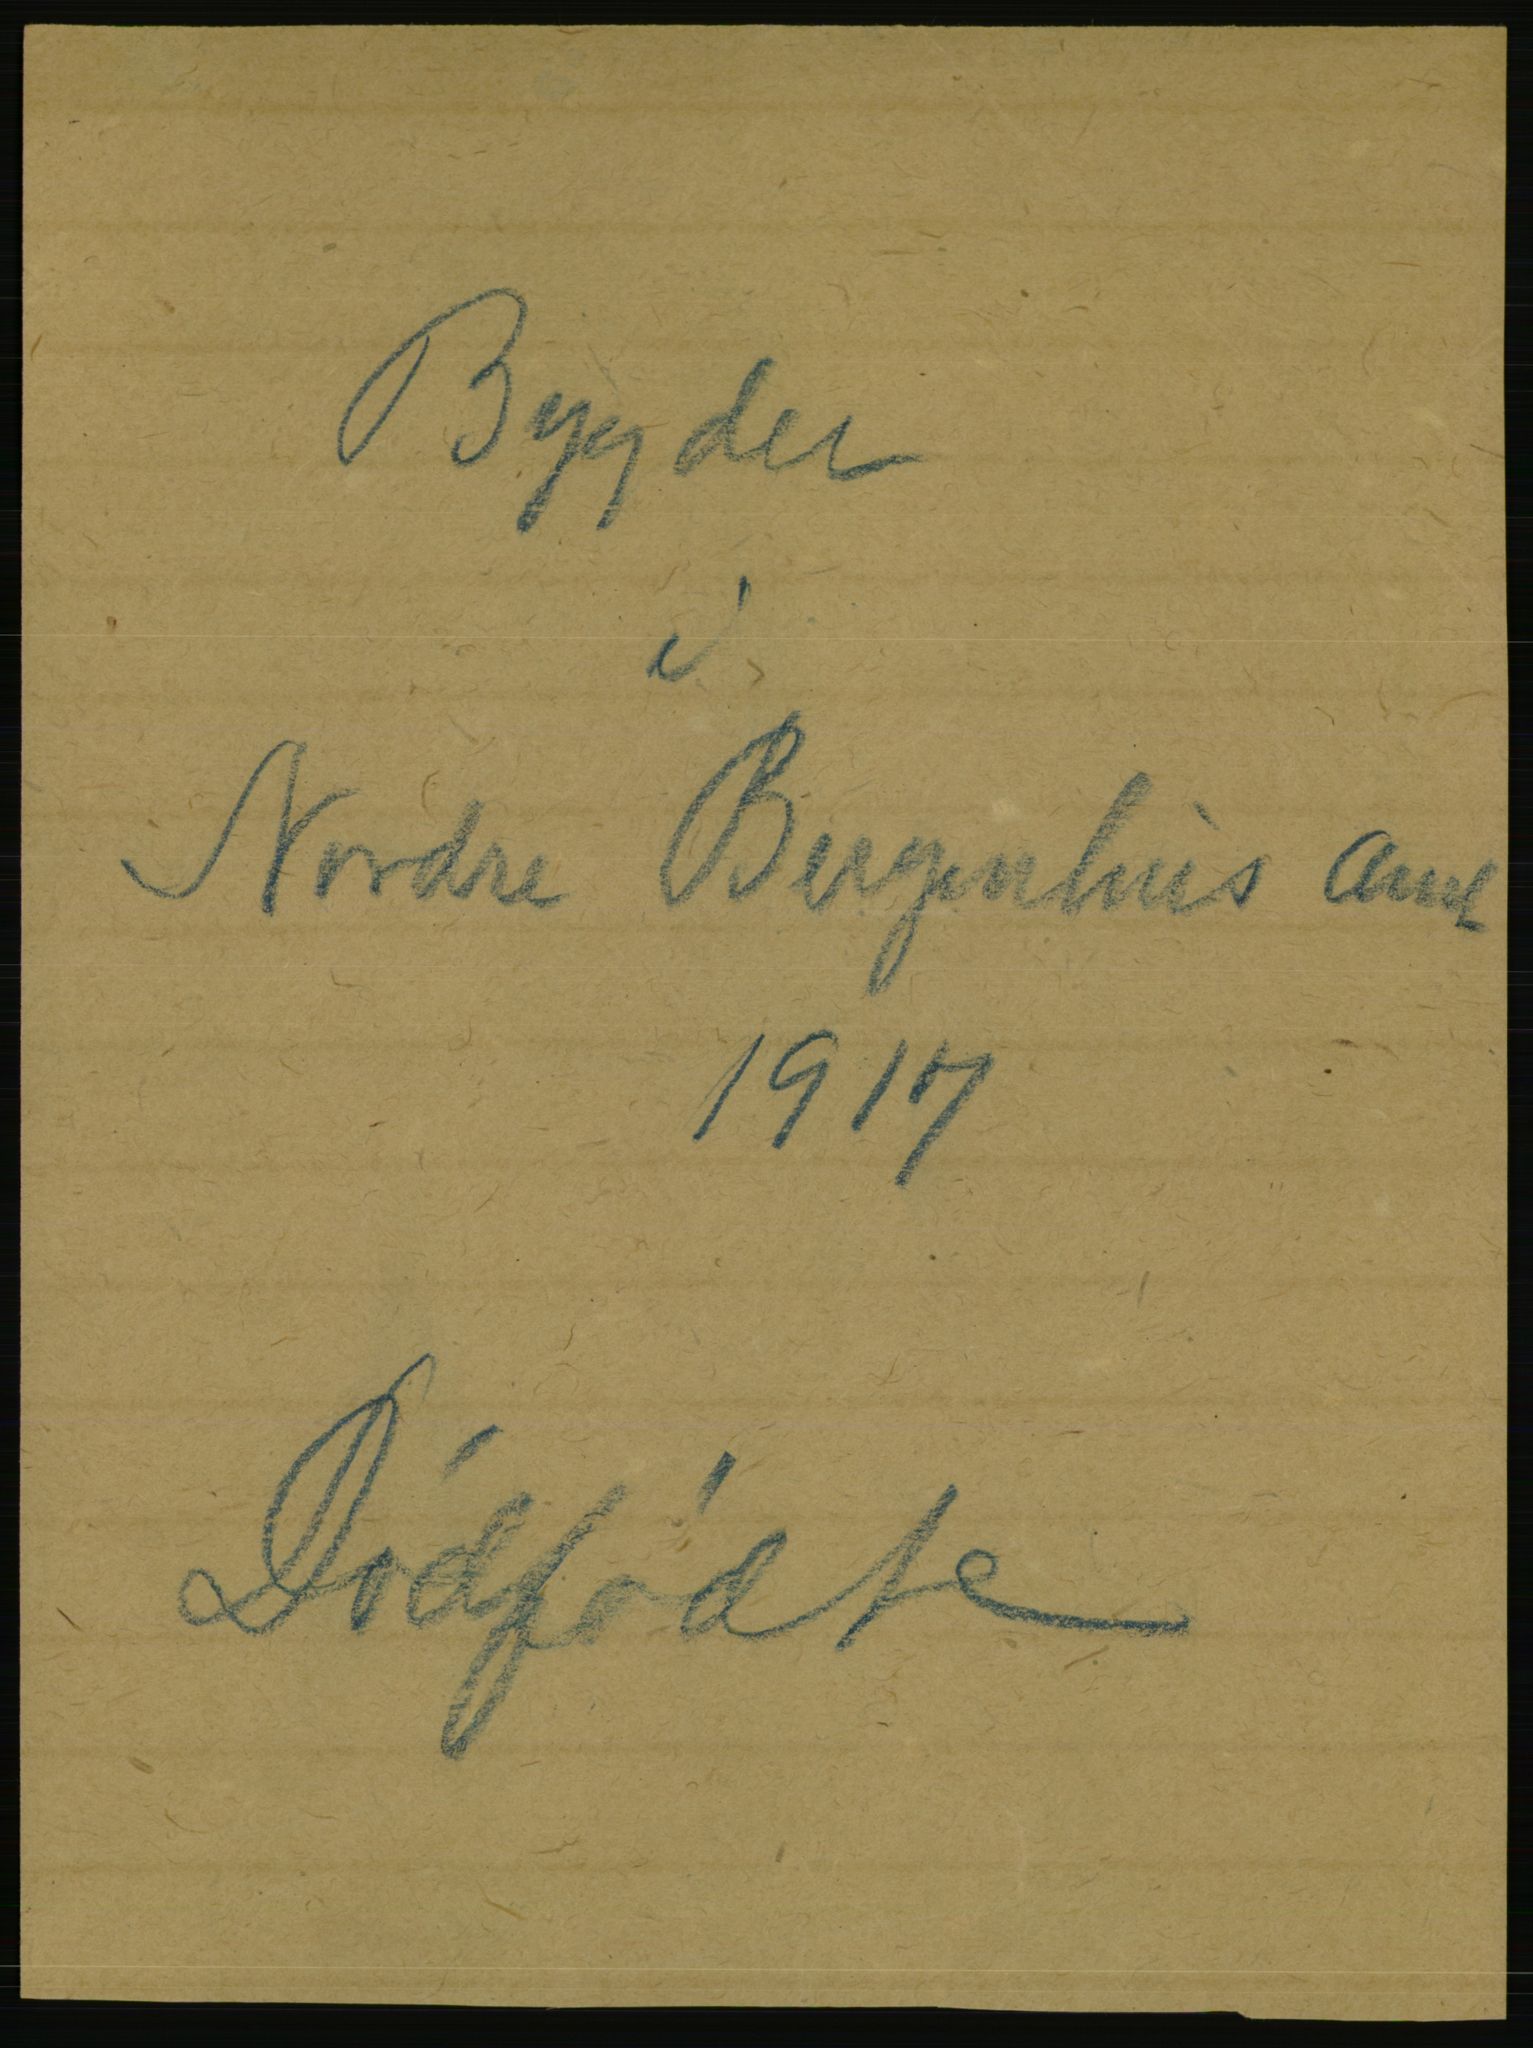 Bygder
i
Nordre Bergenhus amt
1917
Dódfódte